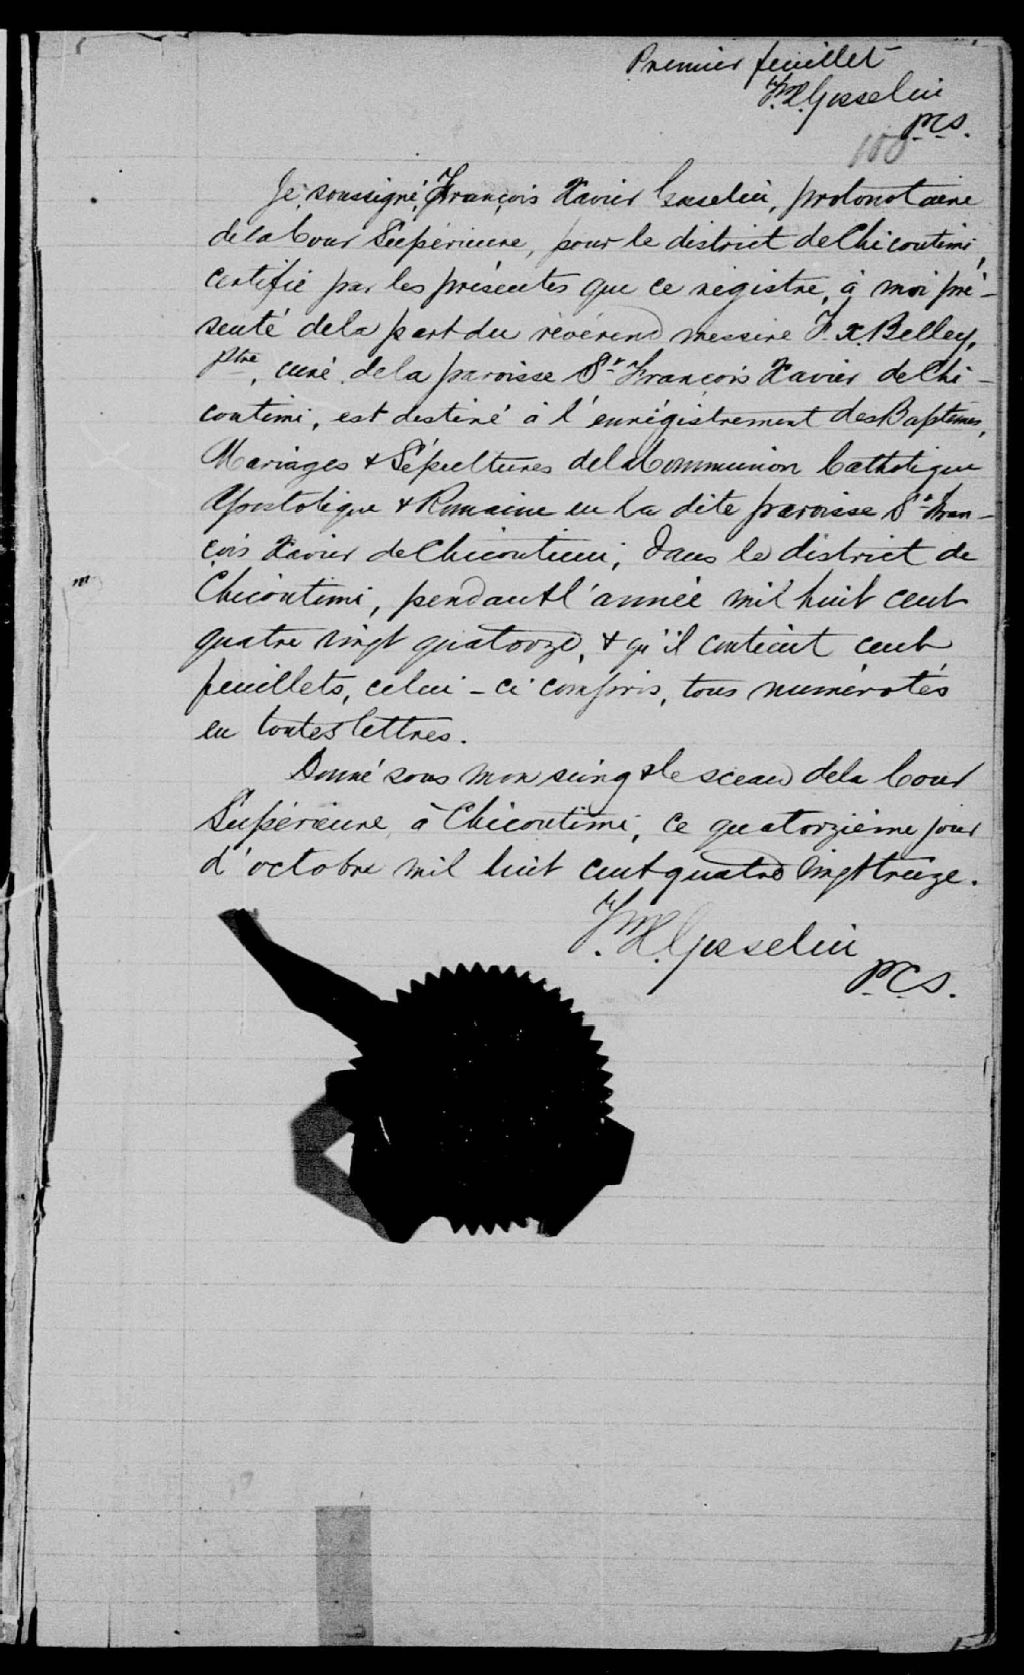 Premier feuillet
F. X. Gosselin
P.C.S.
100
Je, soussigné, François Xavier Gosselin, protonotaire
de la Cour Supérieure, pour le district de Chicoutimi,
certifie par les présentes que ce régistre, à moi pré-
senté de la part du révérend messire F. X. Belley,
ptre, curé de la paroisse St François Xavier de Chi-
coutimi, est destiné à l'enrégistrement des Baptêmes,
Mariages & Sépultures de la Communion Catholique
Apostolique & Romaine en la dite paroisse St Fran-
çois Xavier de Chicoutimi, dans le district de
Chicoutimi, pendant l'année mil huit cent
quatre vingt quatorze, & qu'il contient cent
feuillets, celui-ci compris, tous numérotés
en toutes lettres.
Donné sous mon seing & le sceau de la Cour
Supérieure, à Chicoutimi, ce quatorzième jour
d'octobre mil huit cent quatre vingt treize.
F. X. Gosselin
P.C.S.